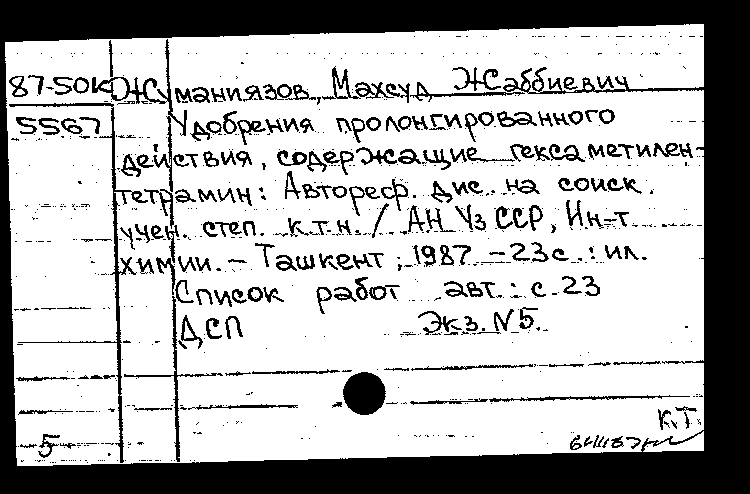 87-50к Жуманиязов, Махсуд Жаббиевич
5567 Удобрения пролонгированного
действия, содержащие гексаметилен-
тетрамин: Автореф. дис. на соиск.
учен. степ. к.т.н. / АН УзССР, Ин-т
химии. - Ташкент, 1987 - 23с. : ил.
Список работ авт.: с. 23
ДСП Экз. N5.
К.Т.
5